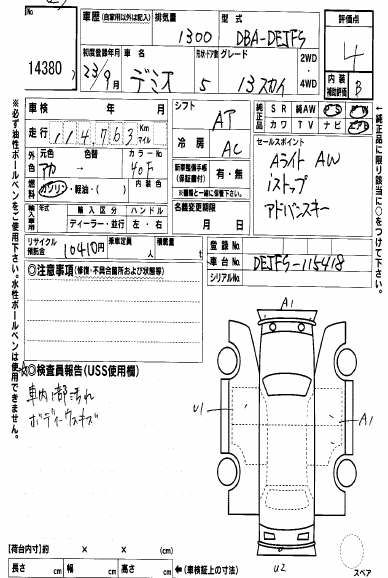 No.
14380
車歴 (自家用以外は記入)
排気量
1300
型式
DBA-DEJFS
評価点
4
初度登録年月
23/9月
車名
デミオ
形状・ドア数
5
グレード
13スカイ
2WD
4WD
内装
補助評価
B
車検 年 月
走行
114,763
Km
マイル
シフト
AT
冷房
AC
純正品
SR 純AW PS PW
カワ TV ナビ エアB
外色
元色
色替
カラーNo.
アカ → 40F
燃料
ガソリン・軽油・( )
内装色
新車整備手帳
(保証書付)
有・無
※書類と一緒に保管下さい。
セールスポイント
Aライト AW
iストップ
アドバンスキー
輸入車用
年式
輸入区分
ハンドル
ディーラー・並行
左・右
名義変更期限
月 日
リサイクル
預託金
10410円
乗車定員
人
積載量
t
登録No.
車台No.
DEJFS-115418
シリアルNo.
◎注意事項 (修復・不具合箇所および状態等)
☆◎検査員報告(USS使用欄)
車内ゴ部汚れ
ボディーウスキズ
A1
U1
A1
U2
スペア
【荷台内寸】約 × × (cm)
長さ cm 幅 cm 高さ cm ←(車検証上の寸法)
※必ず油性ボールペンをご使用下さい。水性ボールペンは使用できません。
←純正品に限り該当に○をつけて下さい。